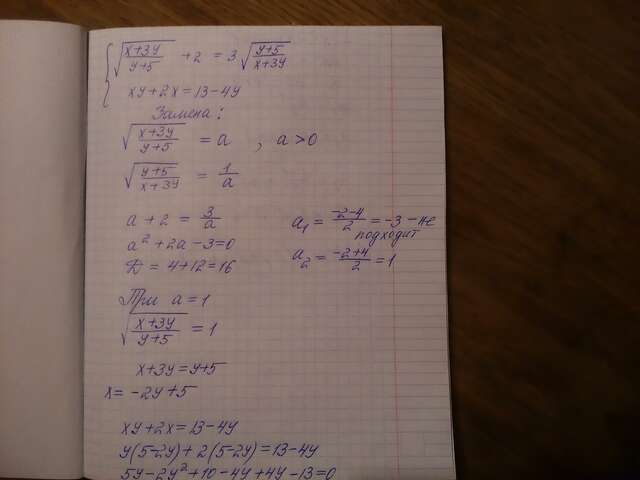 √((x+3y)/(y+5)) + 2 = 3√((y+5)/(x+3y))
xy+2x=13-4y
Замена:
√((x+3y)/(y+5)) = a , a>0
√((y+5)/(x+3y)) = 1/a
a+2 = 3/a
a²+2a-3=0
D = 4+12=16
a₁ = (-2-4)/2 = -3 - не
подходит
a₂ = (-2+4)/2 = 1
При a=1
√((x+3y)/(y+5)) = 1
x+3y=y+5
x= -2y+5
xy+2x=13-4y
y(5-2y)+2(5-2y)=13-4y
5y-2y²+10-4y+4y-13=0